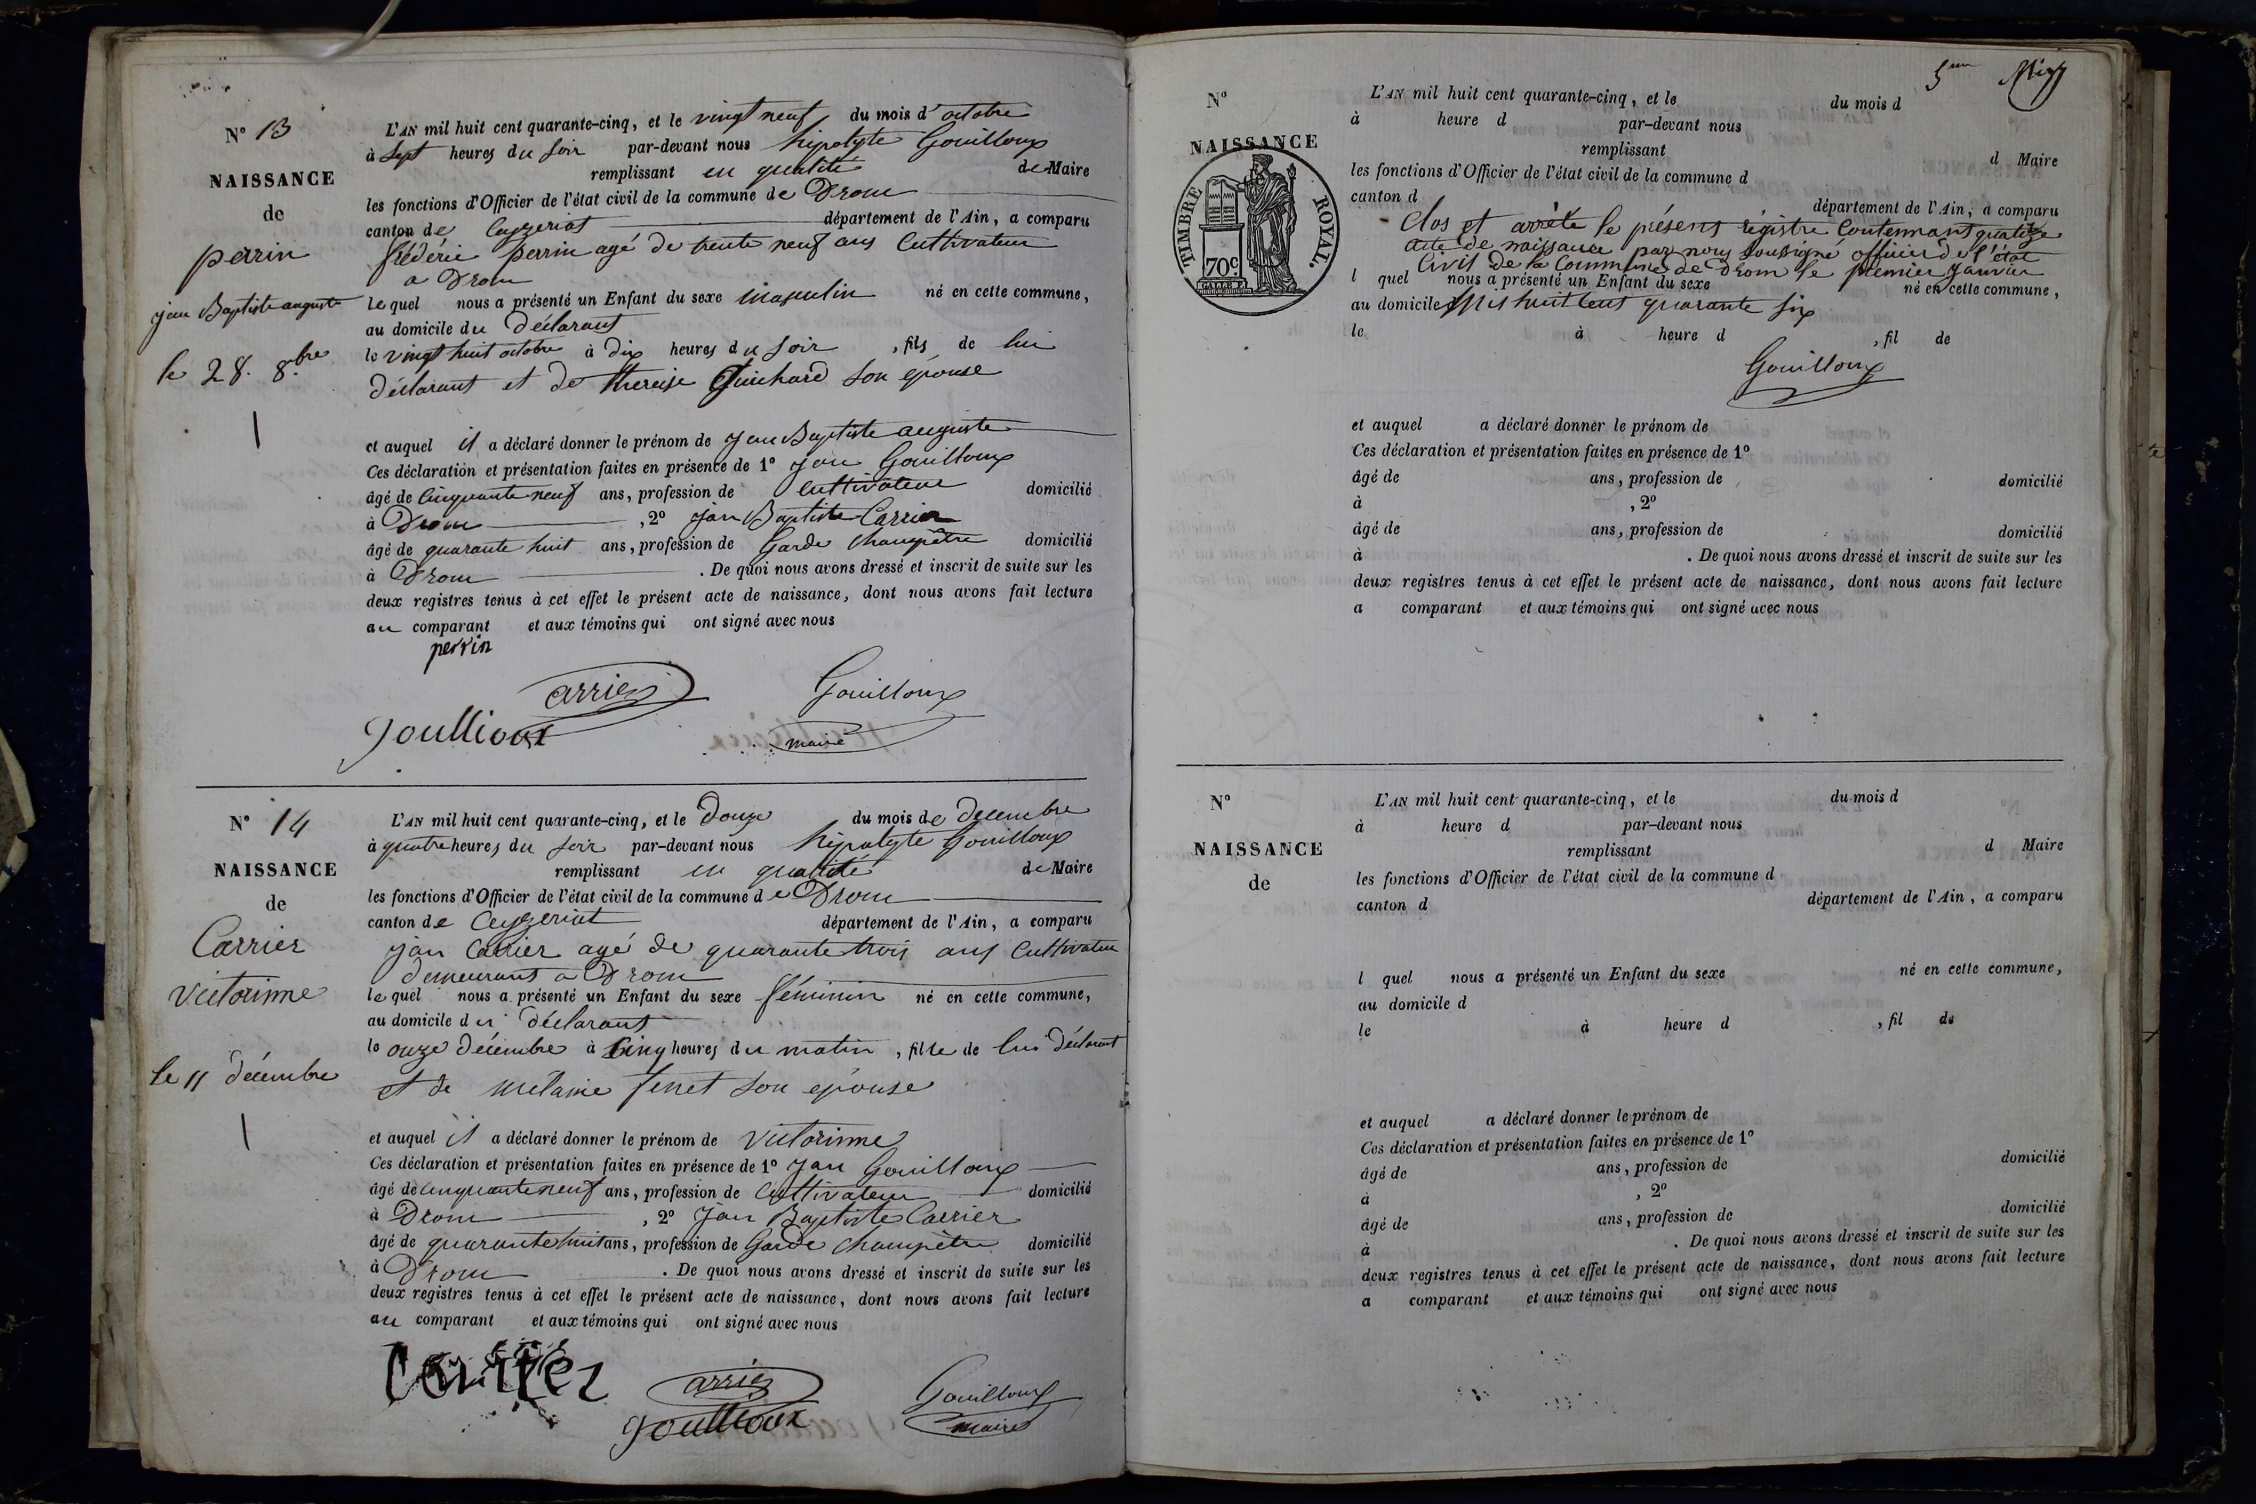 N° 13
NAISSANCE
de
perrin
jean Baptiste auguste
le 28. 8.bre
L'AN mil huit cent quarante-cinq, et le vingt neuf du mois d'octobre
à sept heures du soir par-devant nous hipolyte Gouilloux
remplissant en qualité de Maire
les fonctions d'Officier de l'état civil de la commune de Drom
canton de Ceyzeriat département de l'Ain, a comparu
frédéric perrin agé de trente neuf ans Cultivateur
a Drom
le quel nous a présenté un Enfant du sexe masculin né en cette commune,
au domicile du Déclarant
le vingt huit octobre à dix heures du soir, fils de lui
déclarant et de thereise Guichard son épouse
et auquel il a déclaré donner le prénom de jean Baptiste auguste
Ces déclaration et présentation faites en présence de 1° jean Gouilloux
âgé de Cinquante neuf ans, profession de Cultivateur domicilié
à Drom, 2° jean Baptiste Carrier
âgé de quarante huit ans, profession de Garde Champêtre domicilié
à Drom. De quoi nous avons dressé et inscrit de suite sur les
deux registres tenus à cet effet le présent acte de naissance, dont nous avons fait lecture
au comparant et aux témoins qui ont signé avec nous
perrin
Carrier
Gouilloux
Goullioux
maire
N° 14
NAISSANCE
de
Carrier
Victorinne
le 11 décembre
L'AN mil huit cent quarante-cinq, et le Douze du mois de Decembre
à quatre heures du soir par-devant nous hipolyte Gouilloux
remplissant en qualité de Maire
les fonctions d'Officier de l'état civil de la commune de Drom
canton de Ceyzeriat département de l'Ain, a comparu
jean Carrier agé de quarante trois ans Cultivateur
demeurant a Drom
le quel nous a présenté un Enfant du sexe féminin né en cette commune,
au domicile du déclarant
le onze décembre à Cinq heures du matin, fille de lui déclarant
et de mélanie fenet son epouse
et auquel il a déclaré donner le prénom de Victorinne
Ces déclaration et présentation faites en présence de 1° jean Gouilloux
âgé de cinquante neuf ans, profession de Cultivateur domicilié
à Drom, 2° jean Baptiste Carrier
âgé de quarante huit ans, profession de Garde Champêtre domicilié
à Drom. De quoi nous avons dressé et inscrit de suite sur les
deux registres tenus à cet effet le présent acte de naissance, dont nous avons fait lecture
au comparant et aux témoins qui ont signé avec nous
Carrier
Carrier
Gouilloux
Goullioux
maire
N°
NAISSANCE
TIMBRE ROYAL.
70c.
L'AN mil huit cent quarante-cinq, et le du mois d
à heure d par-devant nous
remplissant d Maire
les fonctions d'Officier de l'état civil de la commune d
canton d département de l'Ain, a comparu
Clos et arrêté le présent régistre Contennant quatorze
acte de naissance par nous soussigné officier de l'état
Civil de la Commune de Drom le premier janvier
l quel nous a présenté un Enfant du sexe né en cette commune,
au domicile mil huit cent quarante six
le à heure d, fil de
Gouilloux
et auquel a déclaré donner le prénom de
Ces déclaration et présentation faites en présence de 1°
âgé de ans, profession de domicilié
à, 2°
âgé de ans, profession de domicilié
à. De quoi nous avons dressé et inscrit de suite sur les
deux registres tenus à cet effet le présent acte de naissance, dont nous avons fait lecture
a comparant et aux témoins qui ont signé avec nous
N°
NAISSANCE
de
L'AN mil huit cent quarante-cinq, et le du mois d
à heure d par-devant nous
remplissant d Maire
les fonctions d'Officier de l'état civil de la commune d
canton d département de l'Ain, a comparu
l quel nous a présenté un Enfant du sexe né en cette commune,
au domicile d
le à heure d, fil de
et auquel a déclaré donner le prénom de
Ces déclaration et présentation faites en présence de 1°
âgé de ans, profession de domicilié
à, 2°
âgé de ans, profession de domicilié
à. De quoi nous avons dressé et inscrit de suite sur les
deux registres tenus à cet effet le présent acte de naissance, dont nous avons fait lecture
a comparant et aux témoins qui ont signé avec nous